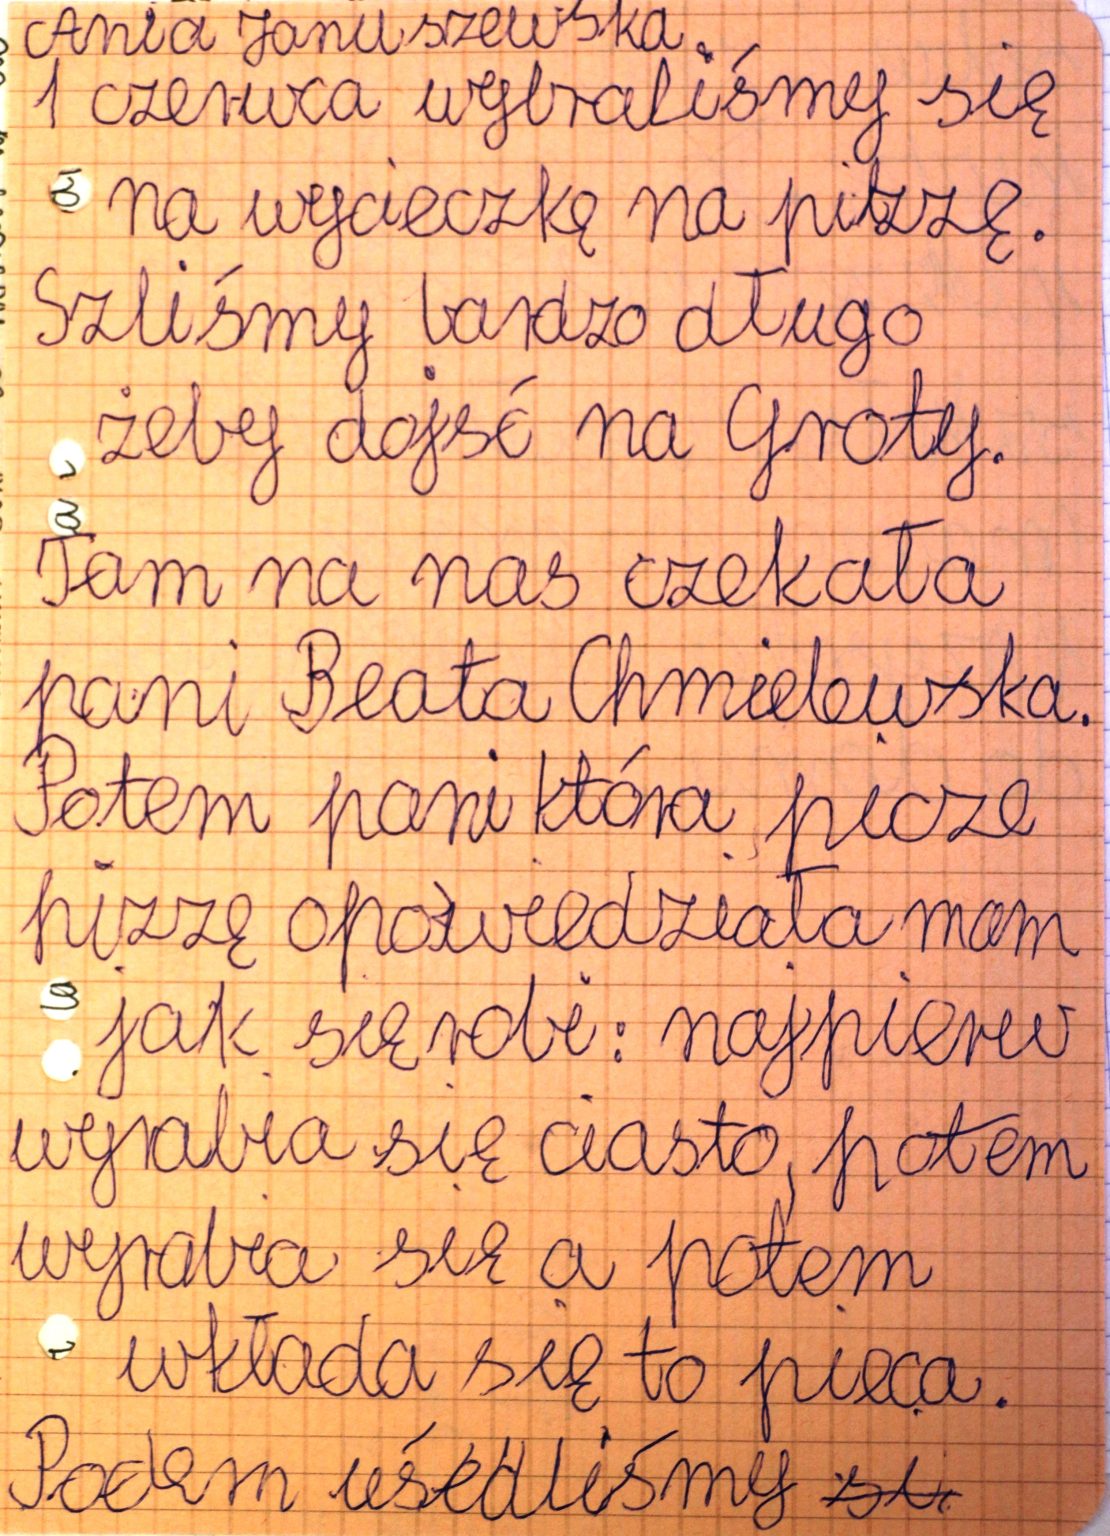 Ania Januszewska.
1 czerwca wybraliśmy się
na wycieczkę na pizzę.
Szliśmy bardzo długo
żeby dojsć na Groty.
Tam na nas czekała
pani Beata Chmielewska.
Potem pani która piecze
pizzę opowiedziała mam
jak się robi: najpierw
wyrabia się ciasto, potem
wyrabia się a potem
wkłada się to pieca.
Podem uśedliśmy